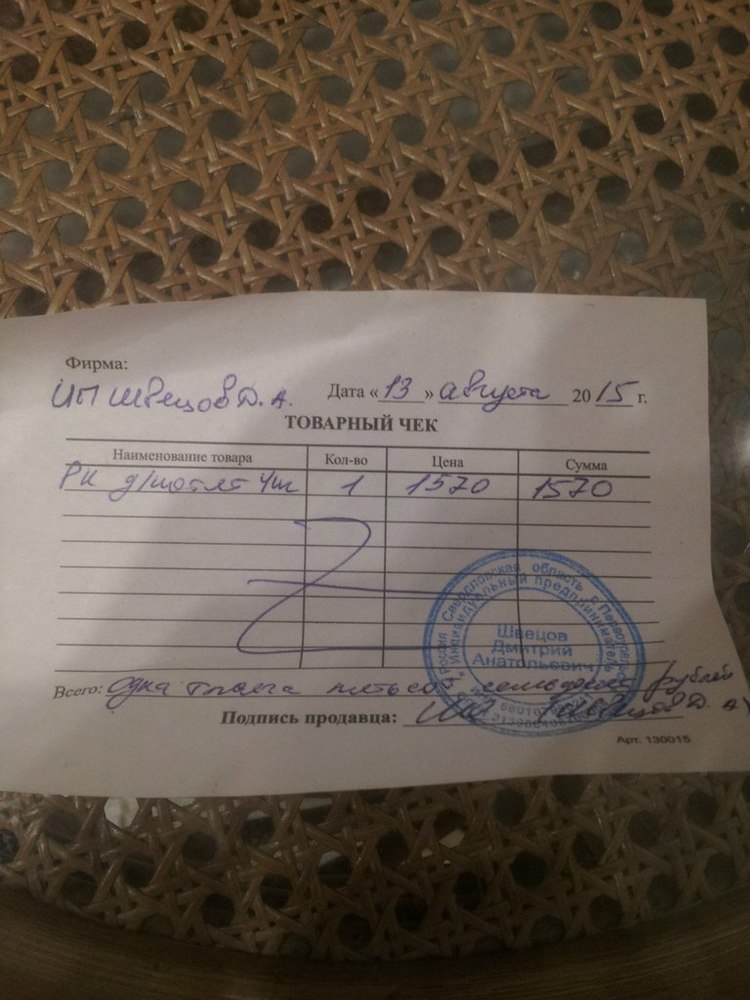 Фирма:
ИП Швецов Д. А. Дата « 13 » августа 2015 г.
ТОВАРНЫЙ ЧЕК
Наименование товара Кол-во Цена Сумма
РК 1 1570 1570
Россия Свердловская область г. Первоуральск
Индивидуальный предприниматель
Швецов
Дмитрий
Анатольевич
Всего: Одна тысяча пятьсот семьдесят рублей
Подпись продавца: (Швецов Д. А)
Арт. 130015